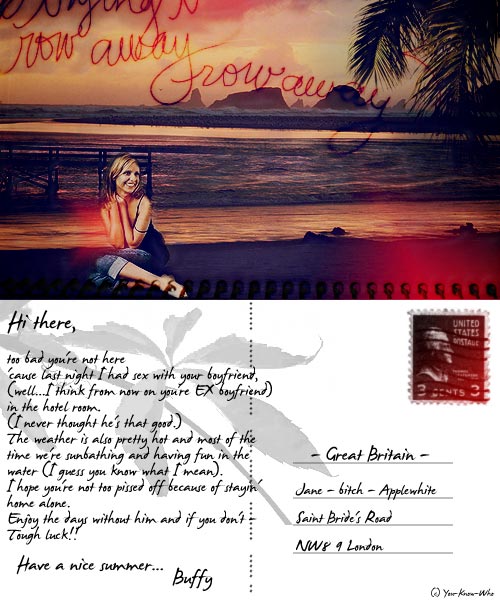 row away
row away
Hi there,
too bad you're not here
'cause last night I had sex with your boyfriend,
(well...I think from now on you're EX boyfriend)
in the hotel room.
(I never thought he's that good.)
The weather is also pretty hot and most of the
time we're sunbathing and having fun in the
water (I guess you know what I mean).
I hope you're not too pissed off because of stayin'
home alone.
Enjoy the days without him and if you don't -
Tough luck!!
Have a nice summer...
Buffy
UNITED
STATES
POSTAGE
3 CENTS 3
- Great Britain -
Jane - bitch - Applewhite
Saint Bride's Road
NW8 9 London
(c) You-Know-Who